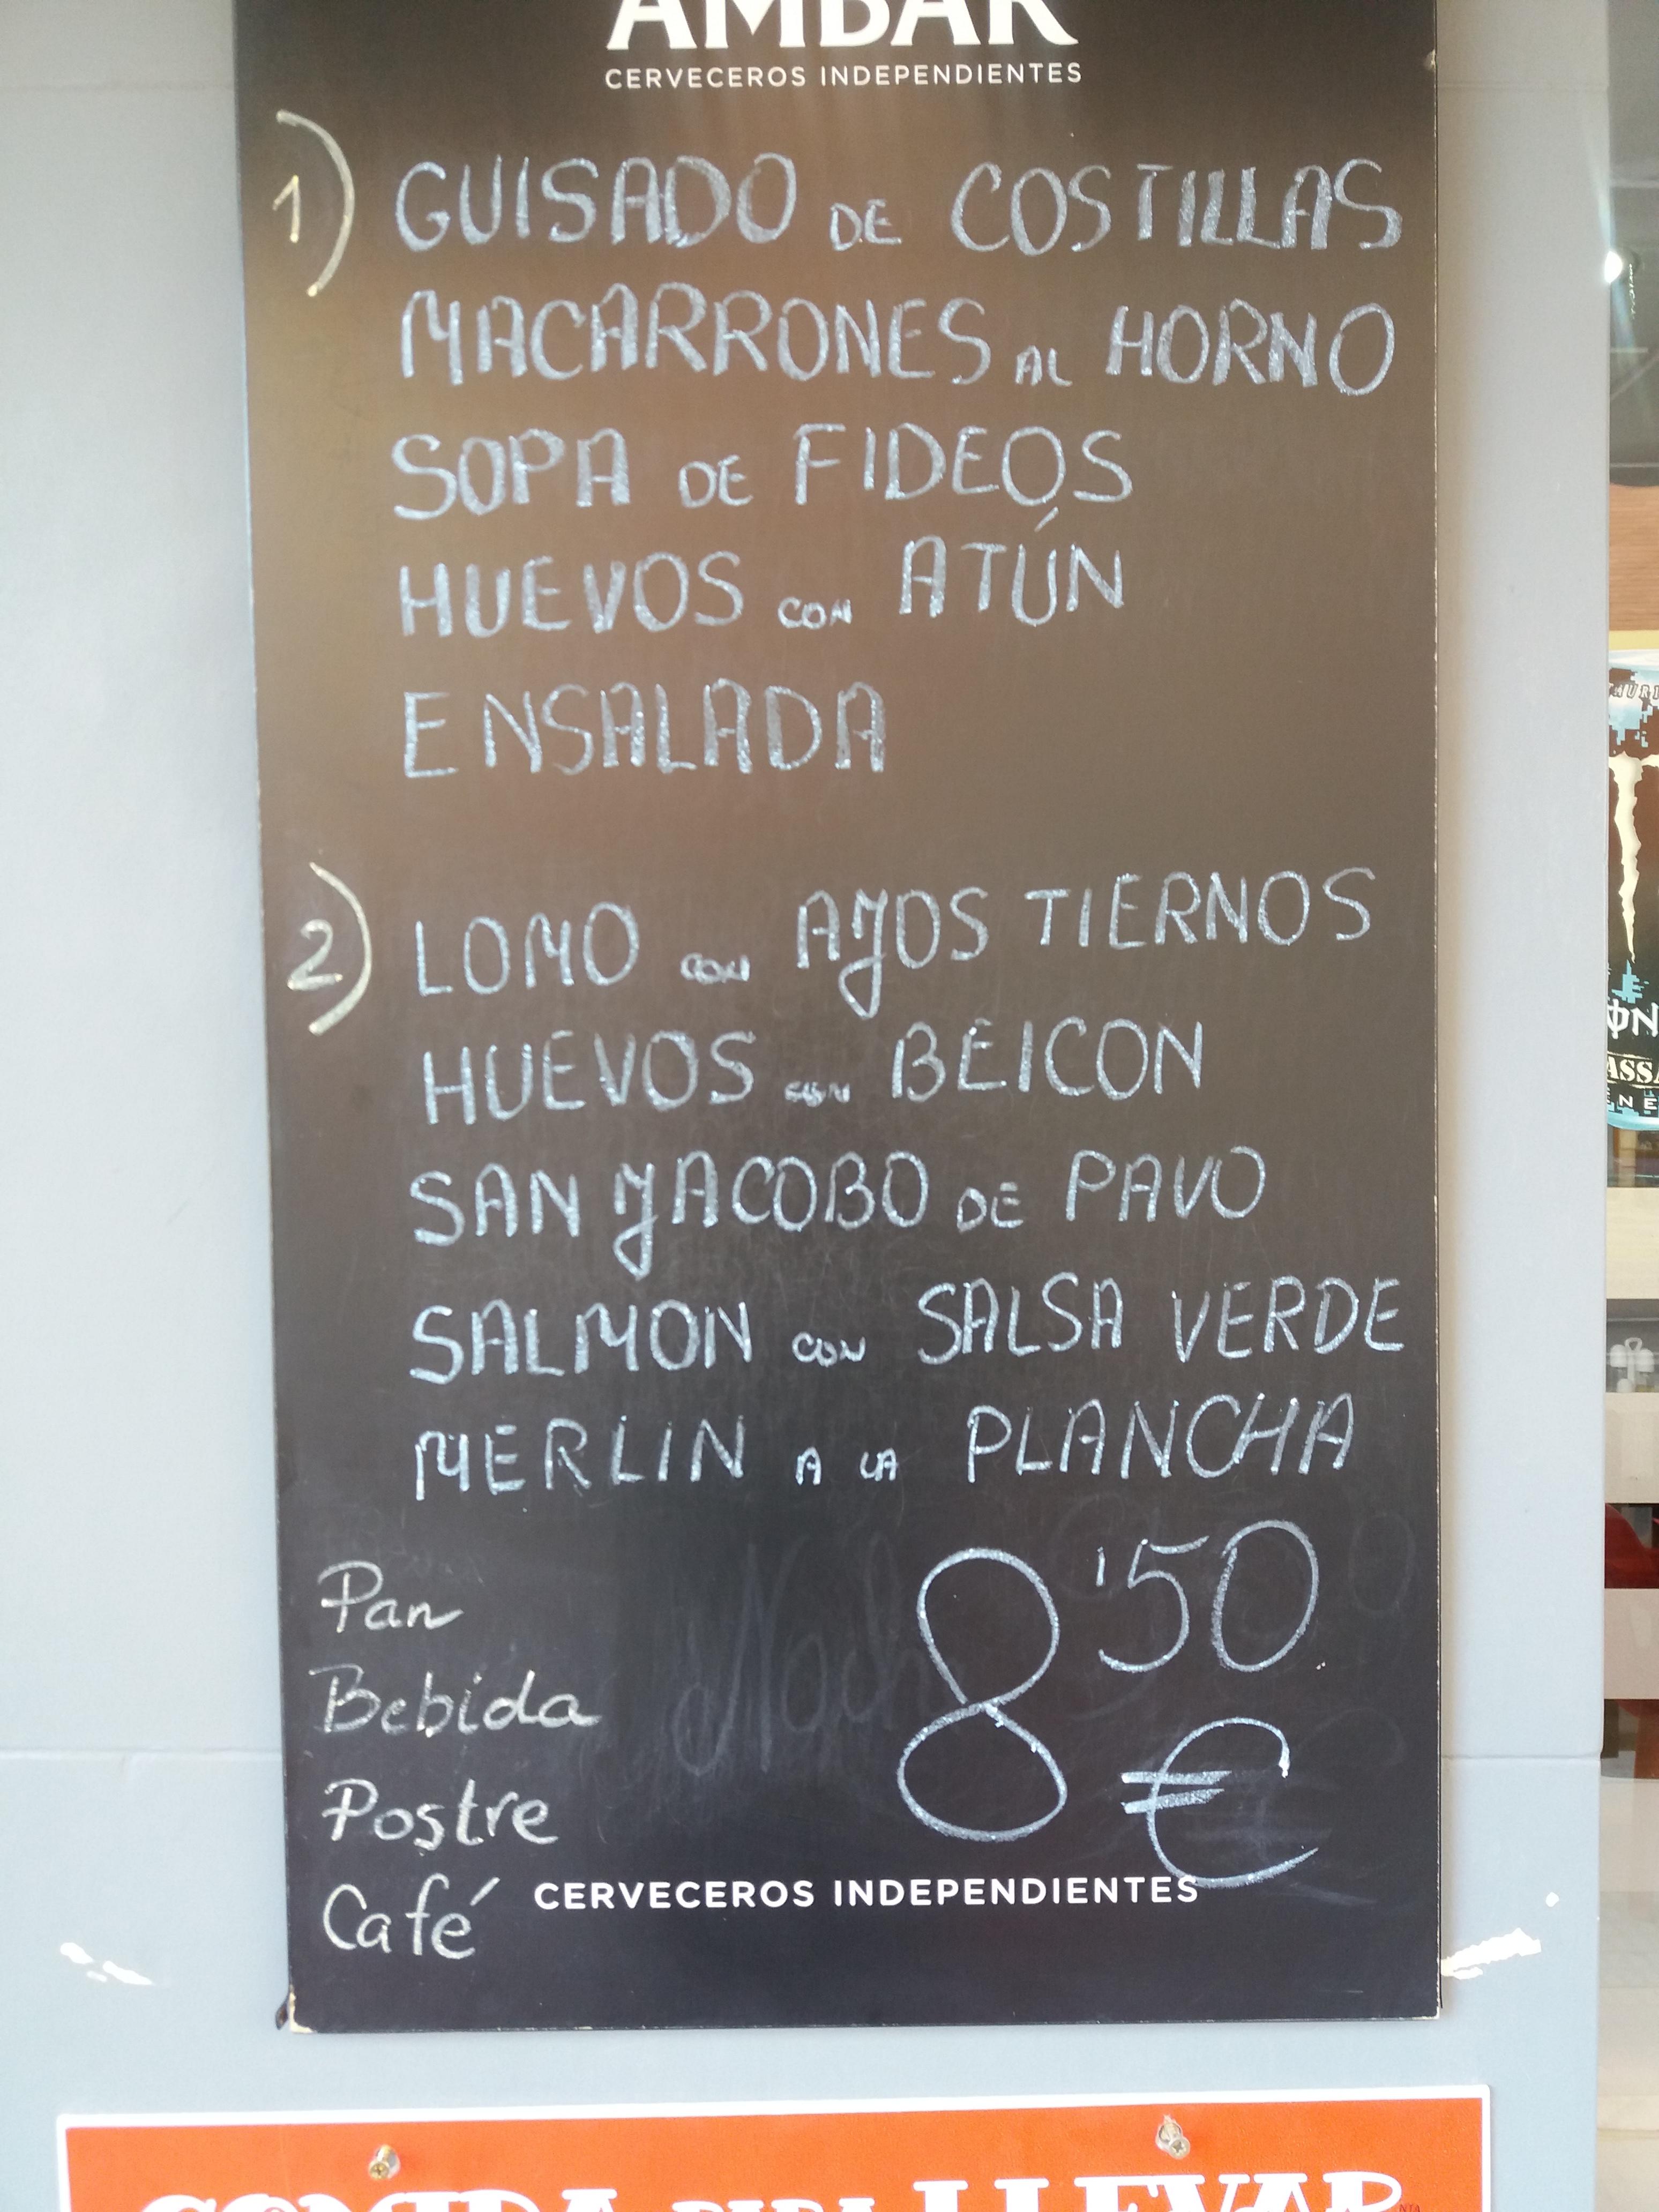 AMBAR
CERVECEROS INDEPENDIENTES
1) GUISADO DE COSTILLAS
MACARRONES AL HORNO
SOPA DE FIDEOS
HUEVOS CON ATÚN
ENSALADA
2) LOMO CON AJOS TIERNOS
HUEVOS CON BEICON
SAN JACOBO DE PAVO
SALMON CON SALSA VERDE
MERLIN A LA PLANCHA
Pan
Bebida
Postre
Café
8'50
€
CERVECEROS INDEPENDIENTES
COMIDA PARA LLEVAR